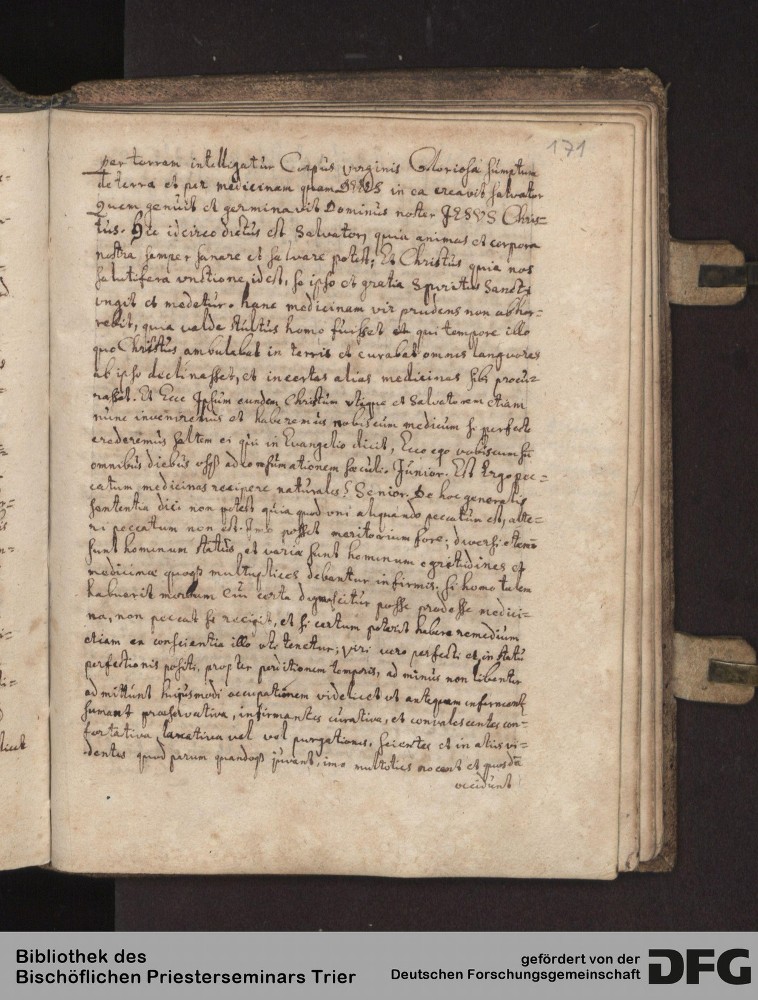 171
per terram intelligatur Corpus virginis Gloriosa sumptum
de terra et per medicinam quam DEUS in ea creavit salvator
Quem genuit et germinavit Dominus noster JESVS Chris=
tus. Hic idcirco dictus est Salvator, quia animas et corpora
nostra semper sanare et salvare potest; Et Christus quia nos
salutifera vnctione, id est, se ipso et gratia Spiritus Sancti
vngit et medetur. hanc medicinam vir prudens non abhor=
rebit, quia valde stultus homo fuisset et qui tempore illo
quo Christus ambulabat in terris et curabat omnes languores
ab ipso declinasset, et incertas alias medicinas sibi procu=
rasset. Et Ecce Ipsum eundem Christum vtique et Salvatorem etiam
nunc inveniremus et haberemus nobiscum medicum si perfecte
crederemus saltem ei qui in Evangelio dicit, Ecce ego vobiscum
omnibus diebus usq ad consumationem saeculi. Junior. Est Ergo pec=
catum medicinas recipere naturales? Senior. De hoc generalis
sententia dici non potest quia quod vni aliquando peccatum est, alte=
ri peccatum non est. Imo posset meritorium fore; diversi etenim
sunt hominum status, et variae sunt hominum egritudines et
medicinae quoq multiplices debentur infirmis. Si homo talem
habuerit morbum cui certa dignoscitur posse prodesse medici=
na, non peccat si recipit, et si certum poterit habere remedium
etiam ex conscientia illo uti tenetur; viri vero perfecti et in statu
perfectionis positi, propter perditionem temporis, ad minus non libenter
admittunt hujusmodi occupationem videlicet ut antequam infirment
sumant praeservativa, infirmantes curativa, et convalescentes con=
fortativa, laxativa vel vol purgationes. scientes et in aliis vi=
dentes quod parum quandoq juvant, imo multoties nocent et quosdã
occidunt
Bibliothek des
Bischöflichen Priesterseminars Trier
gefördert von der
Deutschen Forschungsgemeinschaft
DFG